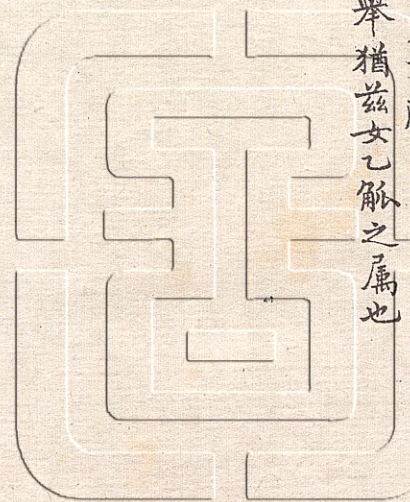 舉猶茲女乙觚之属也